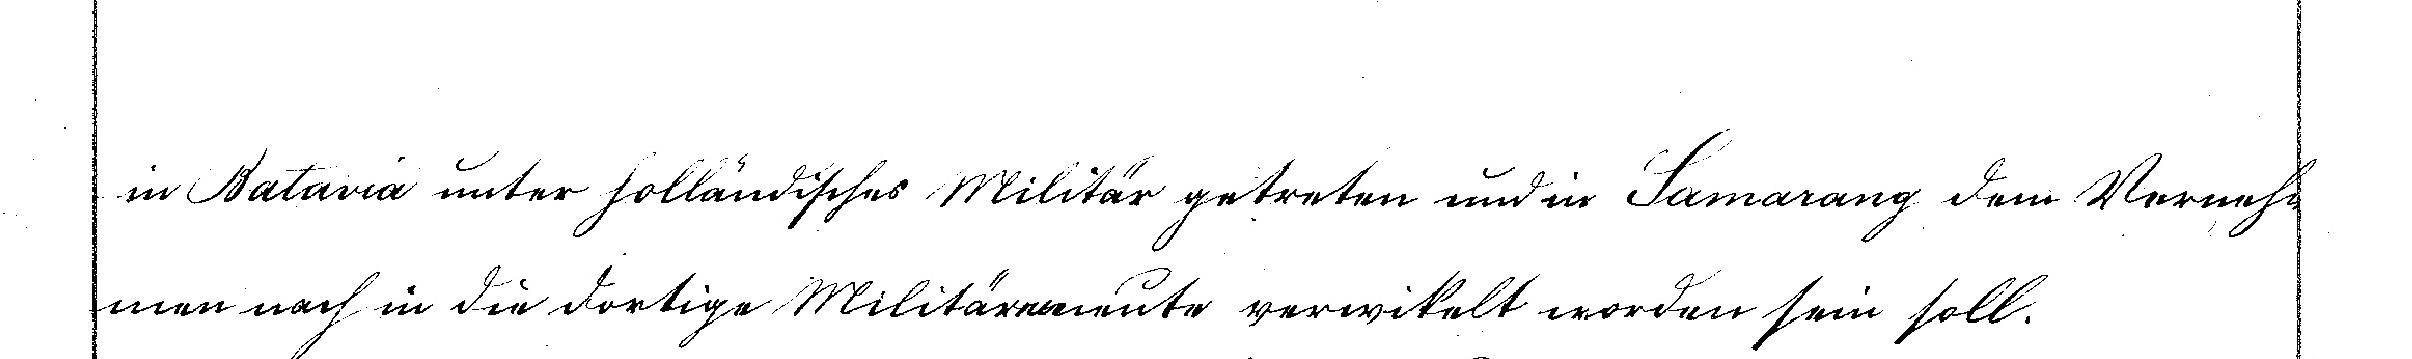 in Batavia unter holländisches Militär getreten und in Samarang dem Verneh-
men nach in die dortige Militärmeute verwikelt worden sein soll.